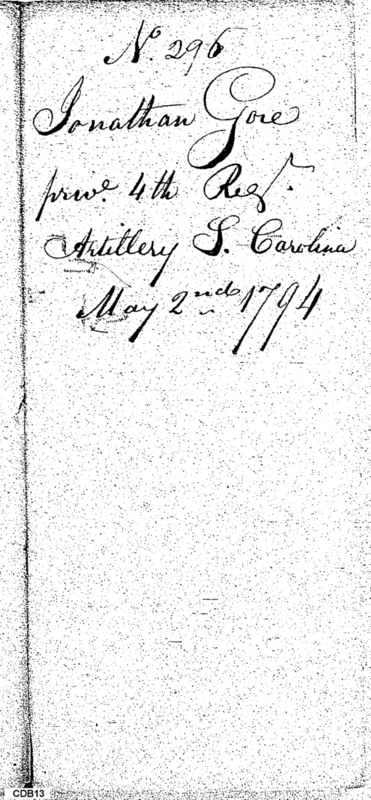 No. 296
Jonathan Gore
prive. 4th Regt.
Artillery S. Carolina
May 2nd 1794
CDB13